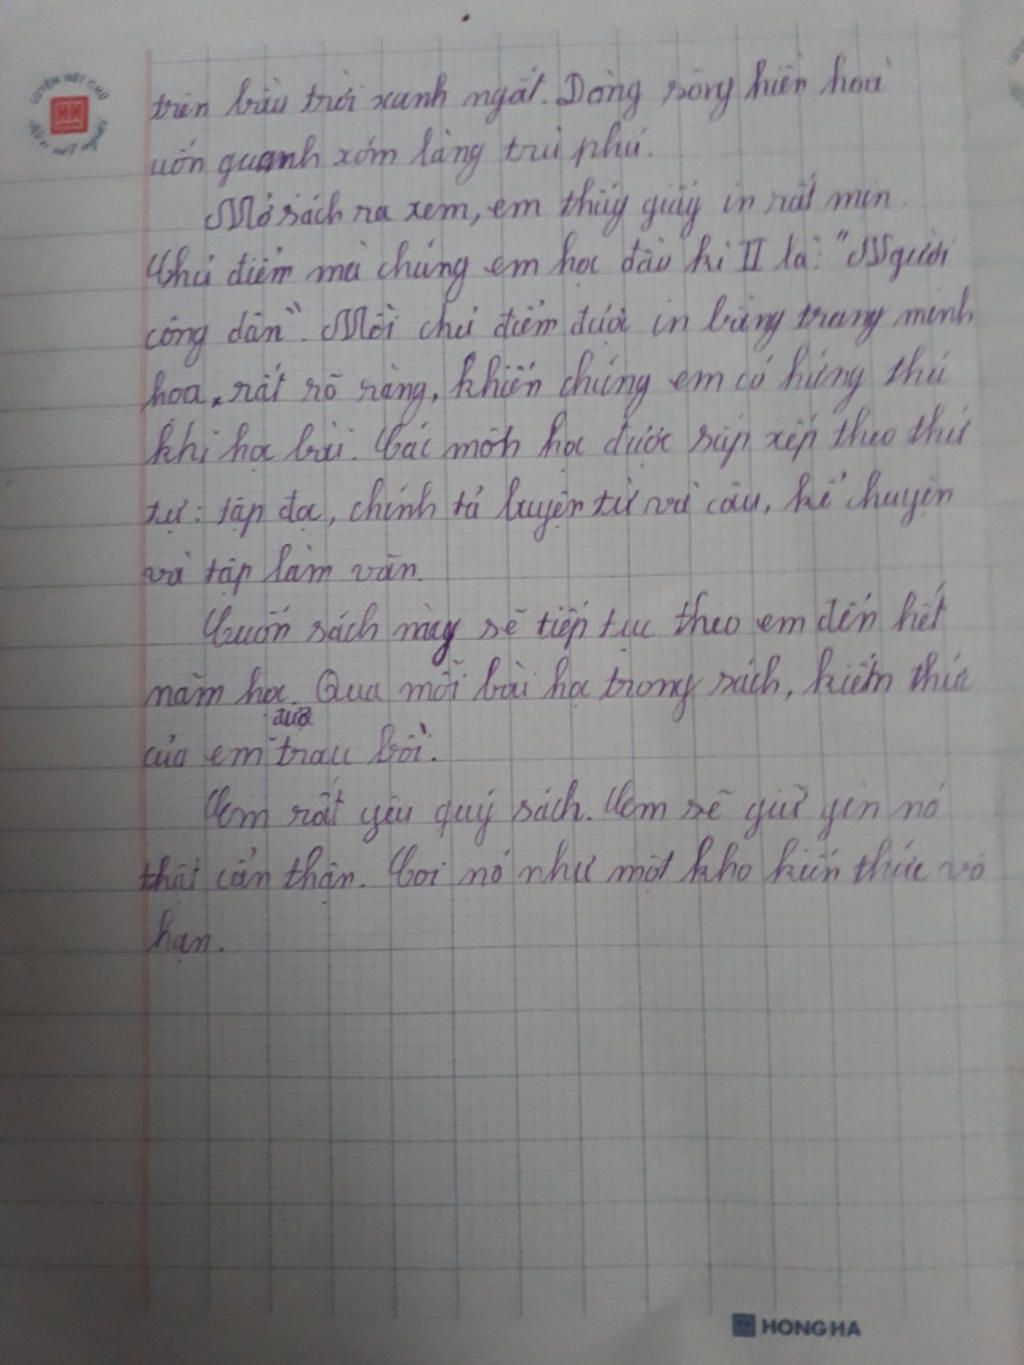 LUYỆN NÉT CHỮ
trên bầu trời xanh ngắt. Dòng sông hiền hoà
uốn quanh xóm làng trù phú.
Mở sách ra xem, em thấy giấy in rất mịn.
Chủ điểm mà chúng em học đầu kì II là: "Người
công dân". Mỗi chủ điểm được in bằng trang minh
hoa, rất rõ ràng, khiến chúng em có hứng thú
khi học bài. Các môn học được sắp xếp theo thứ
tự: tập đọc, chính tả luyện từ và câu, kể chuyện
và tập làm văn.
Cuốn sách này sẽ tiếp tục theo em đến hết
năm học. Qua mỗi bài học trong sách, kiến thức
được
của em trau bồi.
Em rất yêu quý sách. Em sẽ giữ gìn nó
thật cẩn thận. Coi nó như một kho kiến thức vô
hạn.
HONG HA